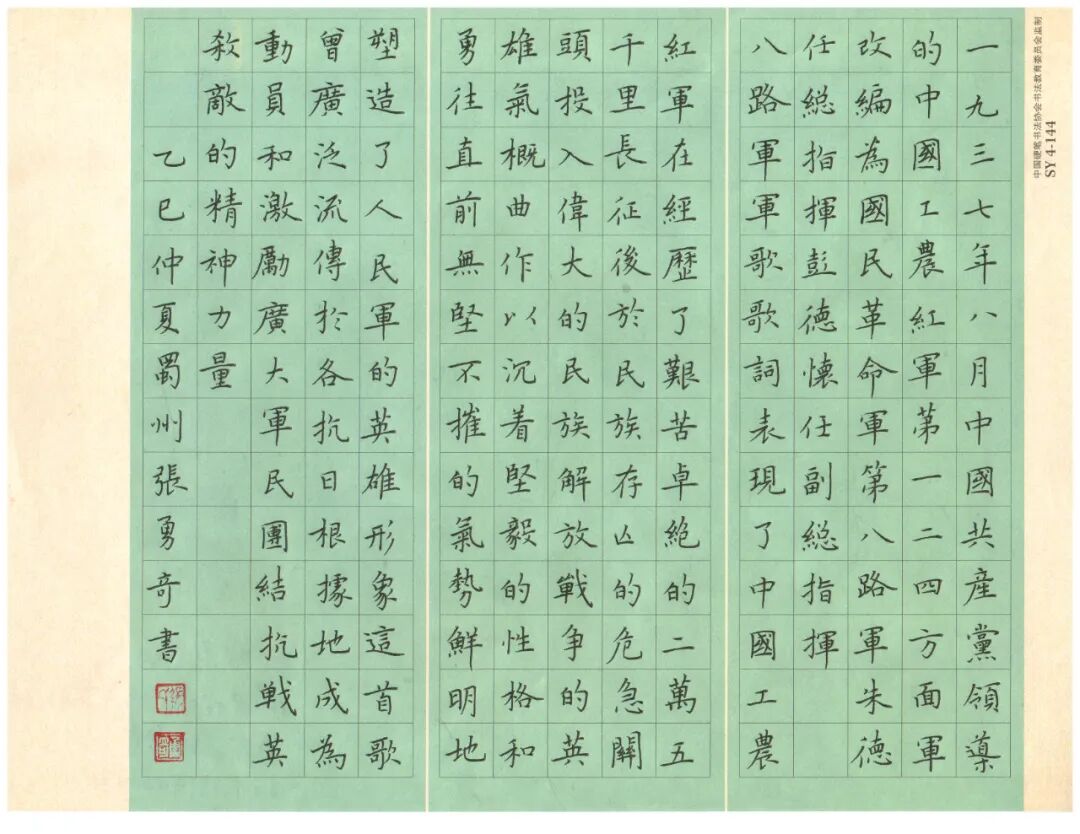 一九三七年八月中國共産黨領導
的中國工農紅軍第一二四方面軍
改編為國民革命軍第八路軍朱德
任総指揮彭德懷任副総指揮
八路軍軍歌歌詞表現了中國工農
紅軍在經歷了艱苦卓絶的二萬五
千里長征後於民族存亡的危急關
頭投入偉大的民族解放戦争的英
雄氣概曲作以沉着堅毅的性格和
勇往直前無堅不摧的氣勢鮮明地
塑造了人民軍的英雄形象這首歌
曾廣泛流傳於各抗日根據地成為
動員和激勵廣大軍民團結抗戦英
殺敵的精神力量
乙巳仲夏蜀州張勇奇書
中国硬笔书法协会书法教育委员会监制
SY 4-144